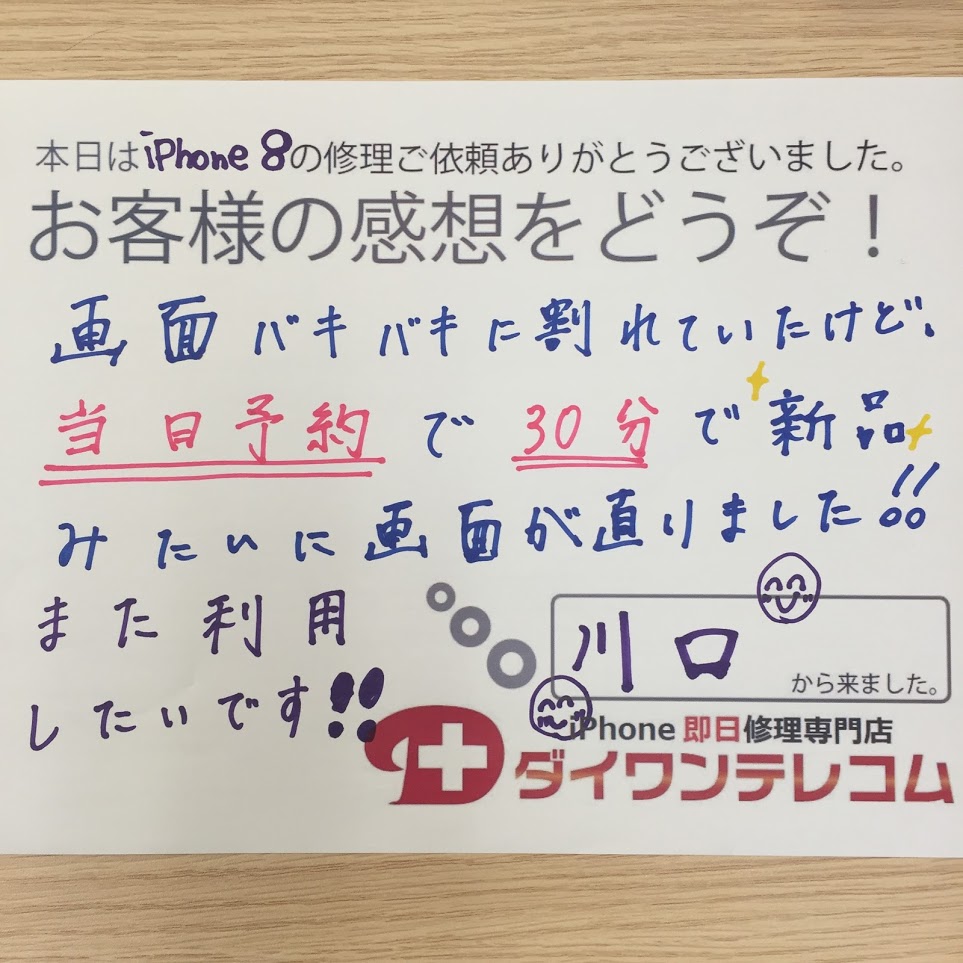 本日はiPhone 8の修理ご依頼ありがとうございました。
お客様の感想をどうぞ！
画面バキバキに割れていたけど、
当日予約で30分で新品
みたいに画面が直りました!!
また利用
したいです!!
川口
から来ました。
iPhone 即日修理専門店
ダイワンテレコム